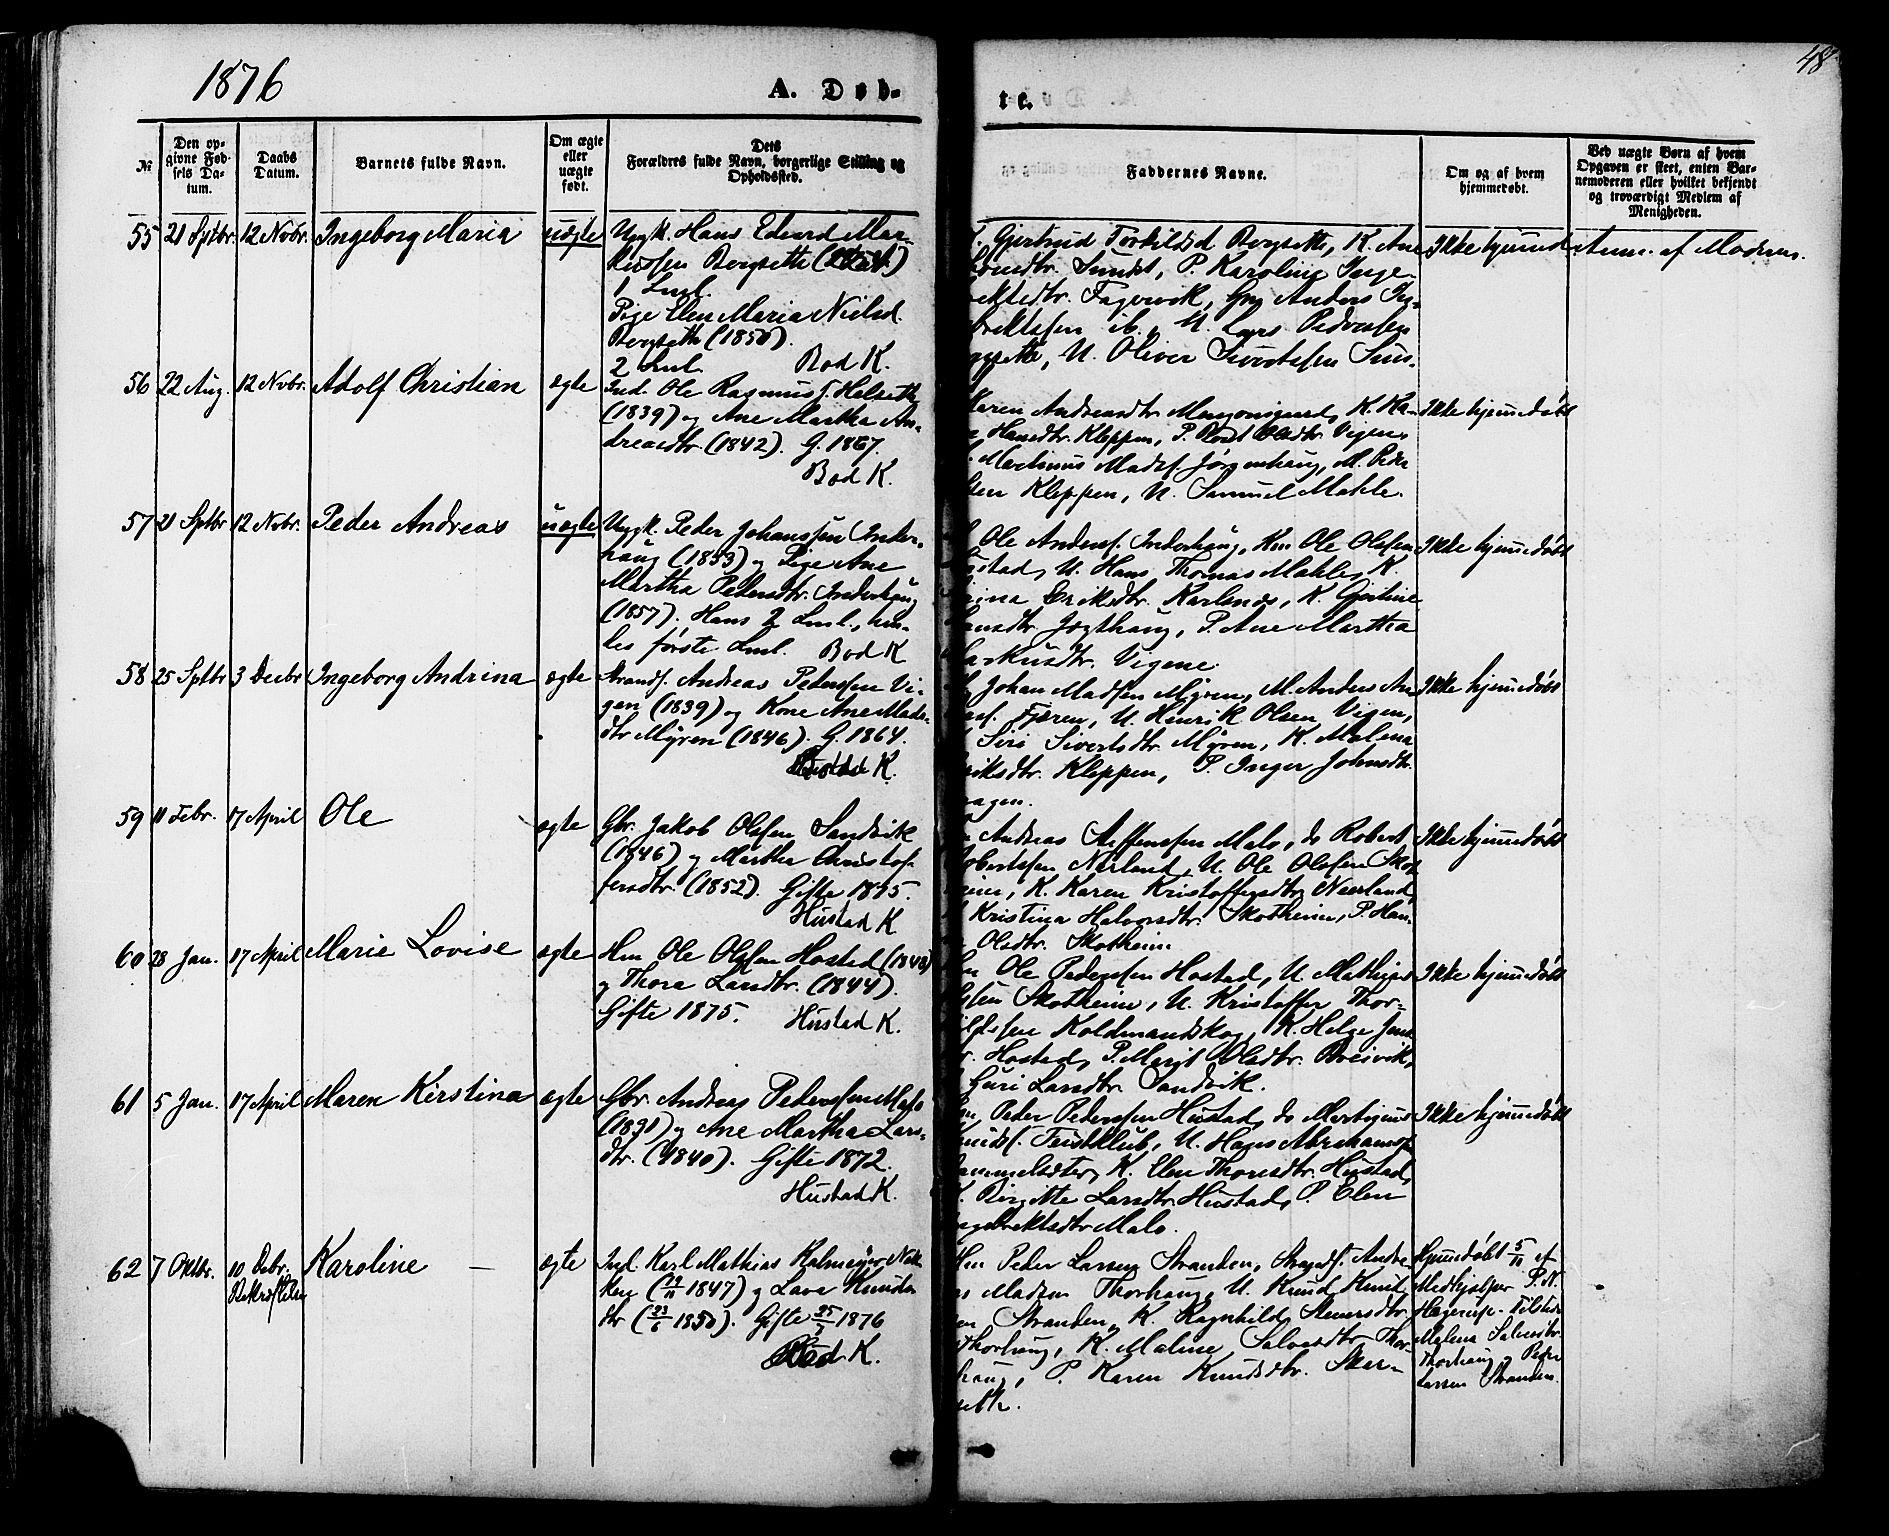 1876
A. Døb-
te.
48
№
Den op-
givne Fød-
sels Da-
tum.
Daabs
Datum.
Barnets fulde Navn.
Om ægte
eller
uægte
født.
Dets
Forældres fulde Navn, borgerlige Stilling og
Opholdssted.
Faddernes Navne.
Om og af hvem
hjemmedøbt.
Ved uægte Børn af hvem
Opgaven er skeet, enten Bar-
nemoderen eller hvilket bekjendt
og troværdigt Medlem af
Menigheden.
55 21 Sptbr. 12 Novbr. Ingeborg Maria uægte Ungk. Hans Edvard Mar-
Bergsette
1 Lml.
Pige Elen Maria Nielsd.
Bergseth (1850).
2 Lml. Bod K.
Gjertrud Torkildsd Bergsette, K. Ane
Sundet, P. Karoline Inge-
Fagervik, Gm Anders In-
ib., U. Lars Pedersen
U. Oliver Sivertsen Sun-
Ikke hjemmed.
Anm. af Moderen.
56 22 Aug. 12 Novbr. Adolf Christian ægte Ind. Ole Rasmuss. Helseth
(1839) og Ane Martha An-
dreasdtr (1842). G. 1867.
Bod K.
Karen Andreasdtr K. Ka-
Hansdtr. Kleppen, P. Oledtr. Vigen,
Martinus Mads. Jörgenhaug, M. Peder
Kleppen, U. Samuel Mahle.
Ikke hjemmedøbt
57 21 Sptbr 12 Novbr. Peder Andreas uægte Ungk. Peder Johanssen Inder-
haug (1853) og Pige Ane
Martha Pedersdtr. Inderhaug
(1857). Hans 2 Lml., hen-
des første Lml. Bod K
Ole Anders. Inderhaug, Hm Ole Olsen
U. Hans Thomas Mahle, K.
Eriksdtr. Karlsnes, K. Gjertine
Jægthaug, P. Ane Martha
Vigene.
Ikke hjemmedøbt
58 25 Sptbr 3 Decbr Ingeborg Andrina ægte Strands. Andreas Pederssen Vi-
gen (1839) og Kone Ane Mads-
dtr Myren (1846). G. 1864.
K.
Johan Madssen Myren, M. Anders An-
Fjæren, U. Henrik Olsen Vigen,
Siri Sivertsdtr. Myren, K. Malena
Kleppen, P. Inger Johnsdtr.
Ikke hjemmedøbt
59 11 Febr. 17 April Ole ægte Gbr. Jakob Olsen Sandvik
(1846) og Martha Christof-
fersdtr. (1852). Gifte 1875.
Hustad K
Andreas Steffenssen Malo, do Robert
Robertssen Nerland, U. Ole Olsen Skot-
K. Karen Kristoffersdtr Neerland,
Kristina Halvorsdtr. Skotheim, P. Han-
Olsdtr. Skotheim
Ikke hjemmedøbt
60 28 Jan. 17 April Marie Lovise ægte Hm Ole Olsen Hostad (1848)
og Thora Larsdtr. (1844).
Gifte 1875. Hustad K.
Ole Pederssen Hostad, U. Mathias
Skotheim, U. Kristoffer Thor-
Koldmandskog, K. Helge Jens-
Hostad, P. Marit Olsdtr. Breivik,
Guri Larsdtr Sandvik.
Ikke hjemmedøbt
61 5 Jan. 17 April Maren Kirstina ægte Gbr Andreas Pederssen Malo
(1831) og Ane Martha Lars-
dtr. (1840). Gifte 1872.
Hustad K.
Peder Pederssen Hustad, do
U. Hans Abrahams.
K. Elen Thoresdtr. Hustad,
Birgitte Larsdtr Hustad, P. Elen
Ingebrektsdtr Malo.
Ikke hjemmedøbt
62 7 Oktbr. 10 Debr. Karoline — ægte Ind. Karl Mathias Kalmeyer Nek-
ken (29/11 1847) og Lava Knuds-
dtr (23/6 1850). Gifte 25/7 1876
Bod K.
Bekræftelse
Hm Peder Larsen Stranden, Strands. Andre-
as Madsen Thorhaug, U. Knud Knud-
Stranden, K. Ragnhild Steversdtr
Thorhaug, K. Maline Salvesdtr Thor-
haug, P. Karen Knudsdtr. Sker-
seth.
Hjemmedøbt 5/11 af
Medhjelper P. N.
Hagerup. Tilstede
Malena Salvesdtr.
Thorhaug og Peder
Larsen Stranden.